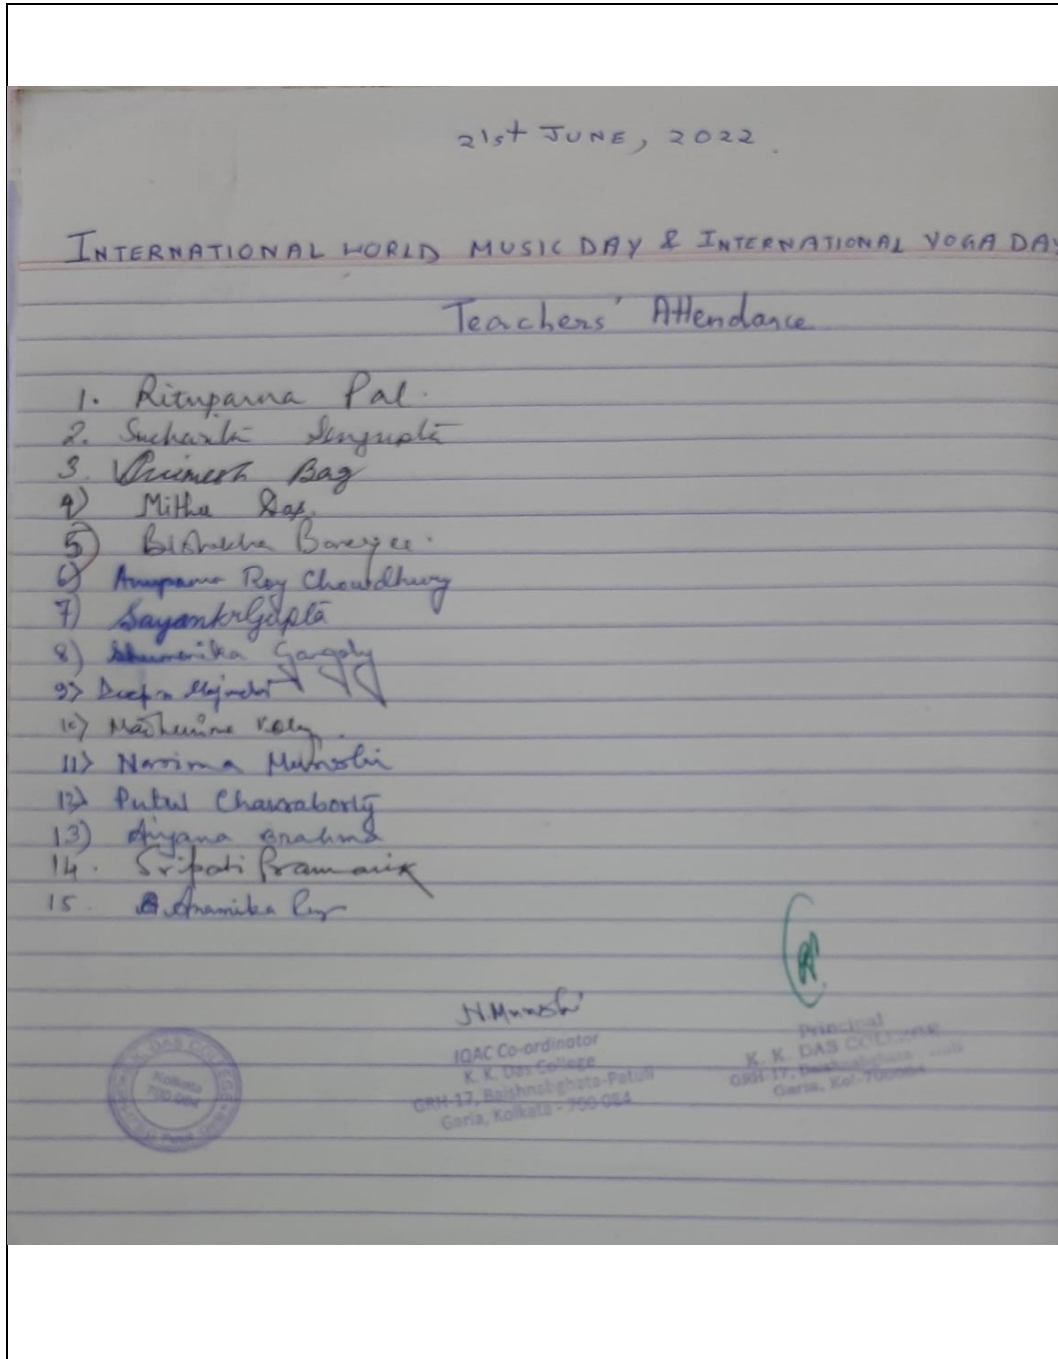 21st JUNE, 2022.
INTERNATIONAL WORLD MUSIC DAY & INTERNATIONAL YOGA DAY
Teachers' Attendance
1. Rituparna Pal.
2. Sucharita Sengupta
3. Bag
4) Mitha Das.
5) Bishakha Banerjee.
6) Anupama Roy Chowdhury
7) Sayankr Gupta
8) Ganguly
9)
10) Madhurima
11) Nasima Munshi
12) Putul Chakraborty
13) Brahma
14. Sripati Pramanik
15. Anamika Roy
N. Munshi
IQAC Co-ordinator
K. K. Das College
GRH-17, Baishnabghata-Patuli
Garia, Kolkata - 700 084
Principal
K. K. DAS COLLEGE
GRH-17, Baishnabghata
Garia, Kol-700084
K. K. DAS COLLEGE
Kolkata
700 084